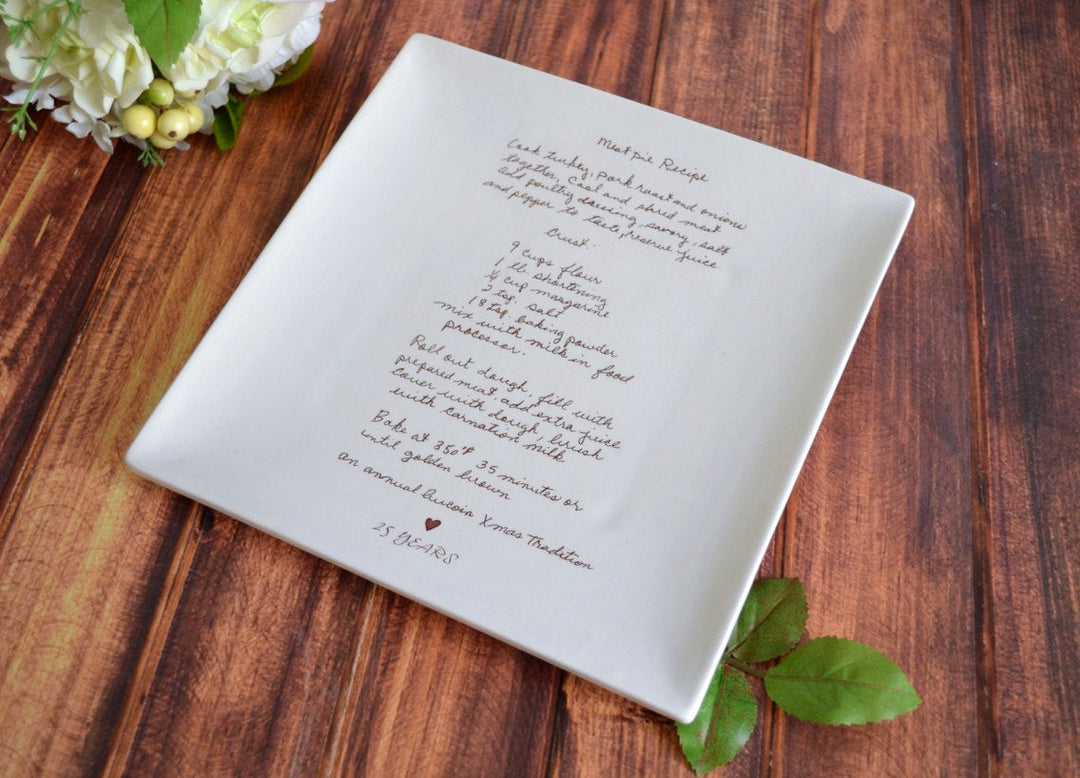 Meat pie Recipe
Cook turkey, pork roast and onions
together, Cool and shred meat
add poultry dressing, savory, salt
and pepper to taste, reserve juice
Crust:
9 cups flour
1 lb. shortening
¼ cup margarine
2 tsp. salt
18 tsp. baking powder
mix with milk in food
processor.
Roll out dough, fill with
prepared meat add extra juice
cover with dough, brush
with carnation milk
Bake at 350°F 35 minutes or
until golden brown
an annual Xmas Tradition
25 YEARS